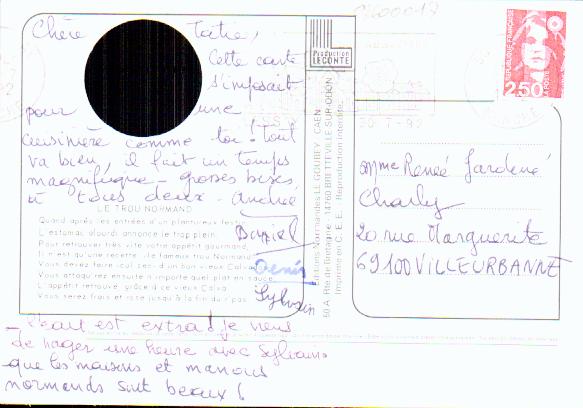 Chère Tatie,
Cette carte
s'imposait
pour une
cuisinière comme toi! Tout
va bien, il fait un temps
magnifique - grosses bises
à tous deux - Andrée
LE TROU NORMAND
Quand après les entrées d'un plantureux festin
L'estomac alourdi annonce le trop plein,
Pour retrouver très vite votre appétit gourmand,
Il n'est qu'une recette: le fameux trou Normand
Vous devez faire cul sec d'un bon vieux Calva
Vous attaquerez ensuite n'importe quel plat en sauce
L'appétit retrouvé, grâce à ce vieux Calva
Vous serez frais et rose jusqu'à la fin du repas
Daniel
Denis
Sylvain
- L'eau est extra! je viens
de nager une heure avec Sylvain
que les maisons et manoirs
normands sont beaux!
Production
LECONTE
Editions Normandes LE GOUBEY CAEN
60 A Rte de Bretagne 14760 BRETTEVILLE-SUR-ODON
Imprimé en C.E.E. Reproduction interdite.
REPUBLIQUE FRANÇAISE
2,50
LA POSTE
Mme Renée Jardené
Charly
20 rue Marguerite
69100 VILLEURBANNE